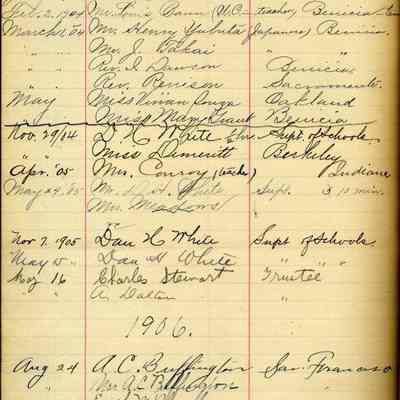 Feb. 2. 1904 Mr. Louis Dann (U.C. teacher) Benicia
March 1, 04 Mr. Henry Yubuta (Japanese) Benicia
" " Mr. J. Sakai " "
" " Rev. I Dawson Benicia
" " Rev. Renison Sacramento.
May Miss Vivian Oakland
Miss Mary Benicia
Nov. 29/04 D. H. White Supt. of Schools
" " Miss Dimmitt Berkeley
Apr. '05 Mrs. Conroy (teacher) Indiana
May 29 '05 Mr. D. H. White Supt. 10 min.
Mr. Meadows "
Nov 7. 1905 Dan H White Supt of Schools
" May 15 " Dan H White " " "
May 16 Charles Stewart Trustee
" " A. Dalton "
1906.
Aug 24 A. C. Buffington San Francisco
" Mrs A. C. Buffington "